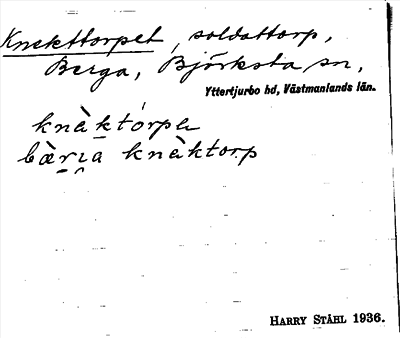 Knekttorpet, soldattorp,
Berga, Björksta sn,
Yttertjurbo hd, Västmanlands län.
knὰktórpə
bὰrı̯a knὰktorp
HARRY STÅHL 1936.